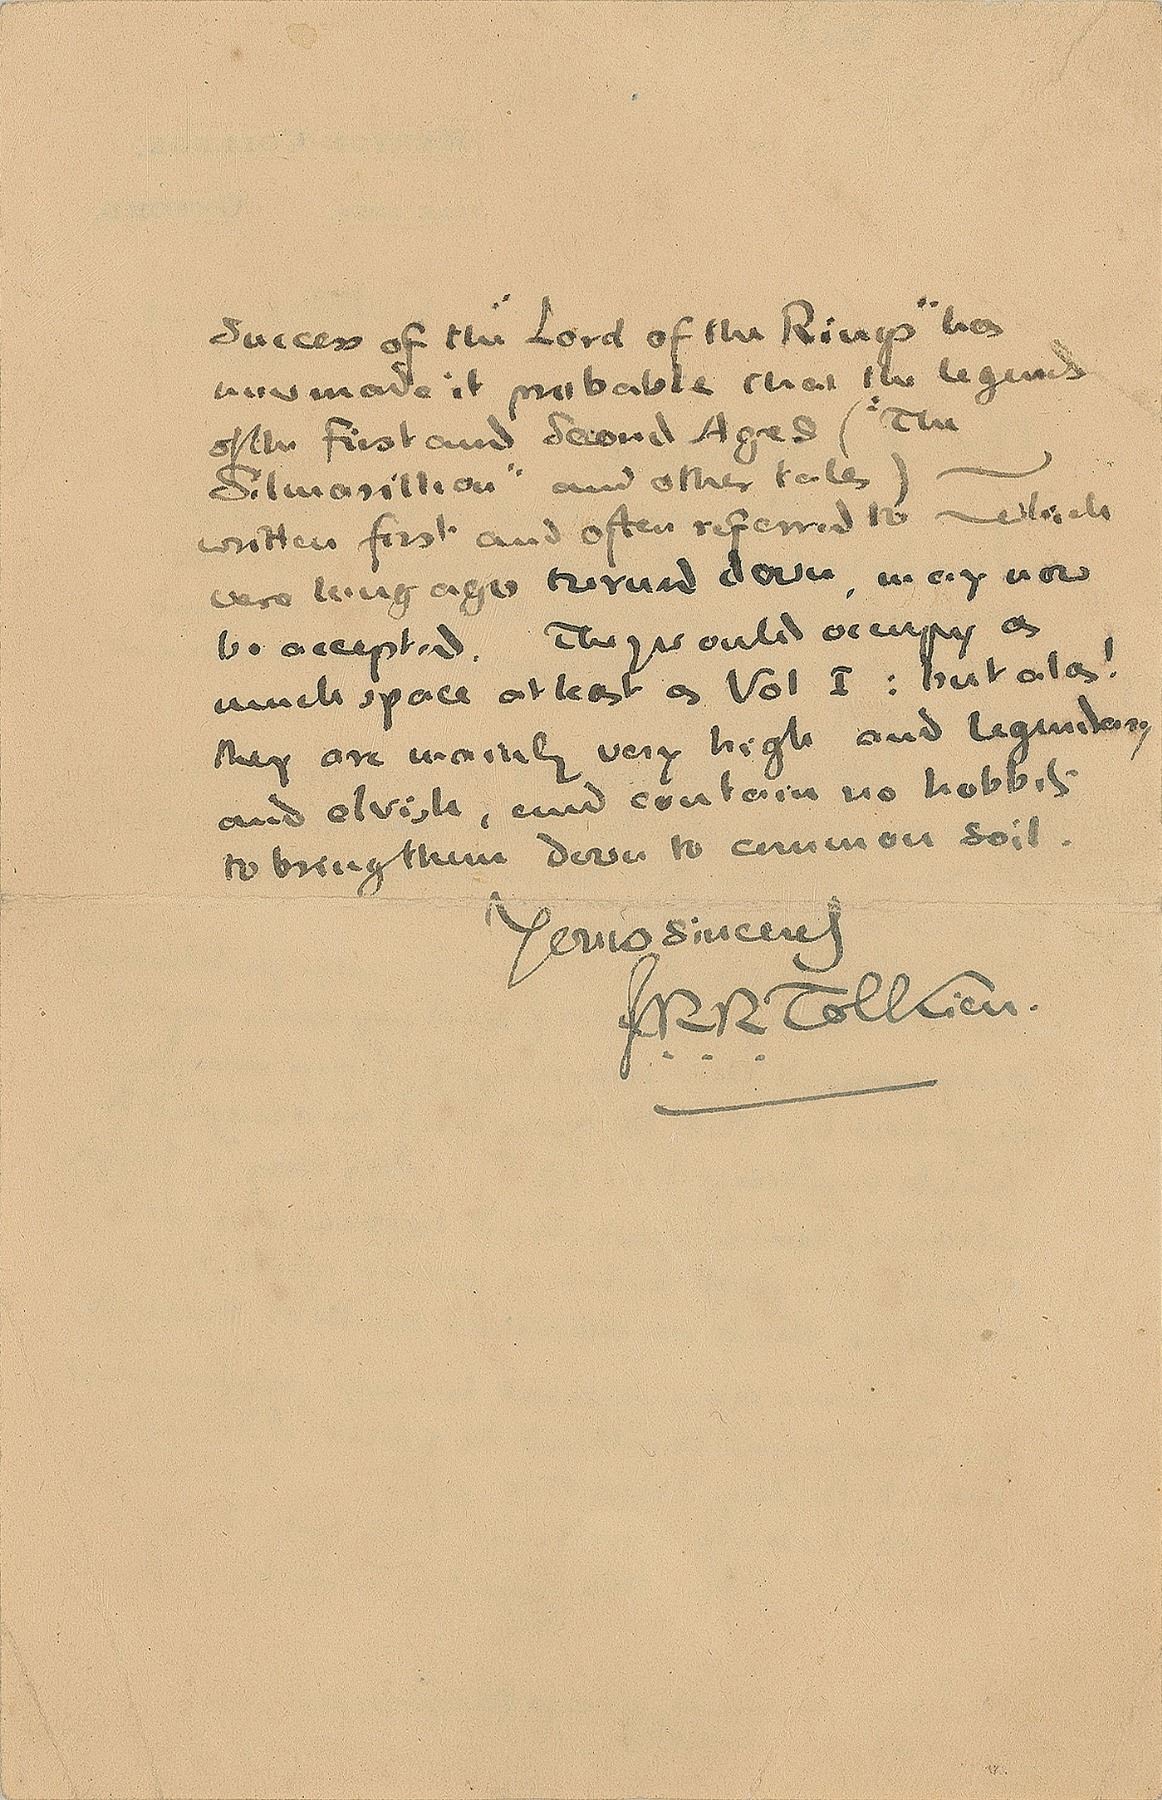 Success of the "Lord of the Rings" has
now made it probable that the legends
of the First and Second Ages ("The
Silmarillion" and other tales) —
written first and often referred to — which
were long ago turned down, may now
be accepted. They would occupy as
much space at least as Vol I : but alas!
they are mainly very high and legendary
and elvish, and contain no hobbits
to bring them down to common soil.
Yours sincerely
JRR Tolkien.